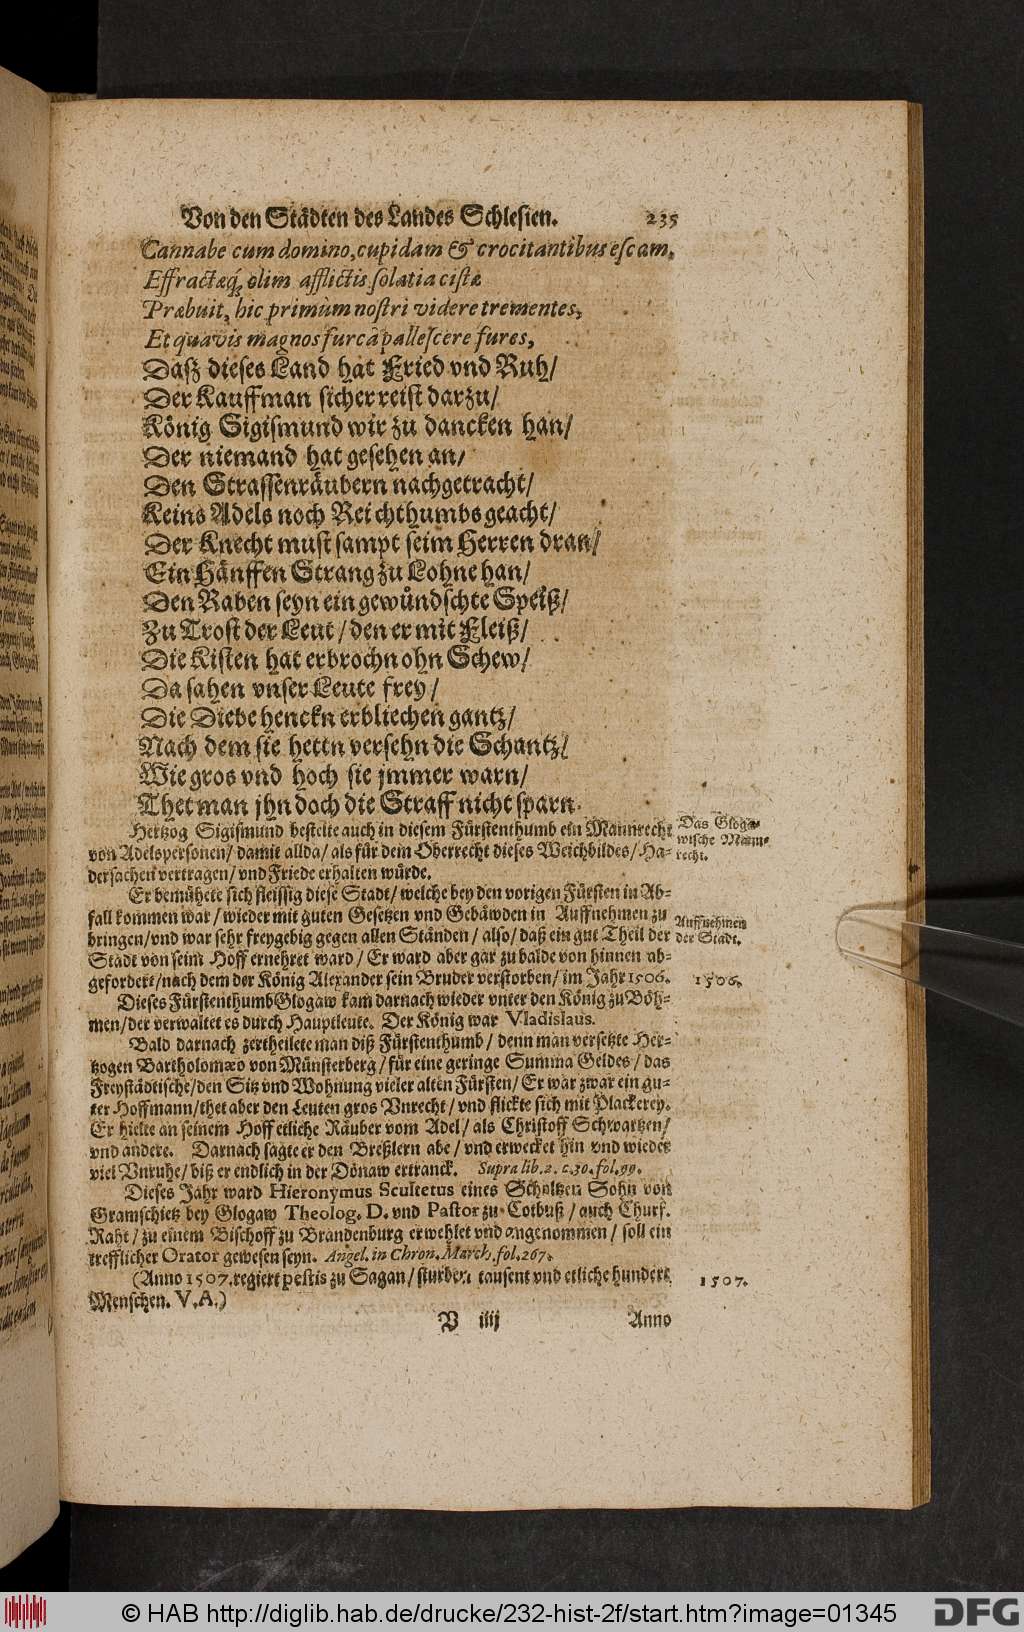 Von den Städten des Landes Schlesien. 235
Cannabe cum domino, cupidam & crocitantibus escam,
Effractæq́; olim afflictis solatia cistæ
Præbuit, hic primùm nostri videre trementes,
Et quavis magnos furcâ pallescere fures,
Dasz dieses Land hat Fried vnd Ruh/
Der Kauffman sicher reist darzu/
König Sigismund wir zu dancken han/
Der niemand hat gesehen an/
Den Strassenräubern nachgetracht/
Keins Adels noch Reichthumbs geacht/
Der Knecht must sampt seim Herren dran/
Ein Hänffen Strang zu Lohne han/
Den Raben seyn ein gewündschte Speiß/
Zu Trost der Leut / den er mit Fleiß/
Die Kisten hat erbrochn ohn Schew/
Da sahen vnser Leute frey/
Die Diebe henckn erbliechen gantz/
Nach dem sie hettn versehn die Schantz/
Wie gros vnd hoch sie jmmer warn/
Thet man jhn doch die Straff nicht sparn.
Hertzog Sigismund bestelte auch in diesem Fürstenthumb ein Mannrecht
von Adelspersonen/ damit allda/ als für dem Oberrecht dieses Weichbildes/ Ha-
dersachen vertragen/ vnd Friede erhalten würde.
Das Gloga-
wische Mann-
recht.
Er bemühete sich fleissig diese Stadt/ welche bey den vorigen Fürsten in Ab-
fall kommen war/ wieder mit guten Gesetzen vnd Gebäwden in Auffnehmen zu
bringen/ vnd war sehr freygebig gegen allen Ständen/ also/ daß ein gut Theil der
Stadt von seim Hoff ernehret ward/ Er ward aber gar zu balde von hinnen ab-
gefordert/ nach dem der König Alexander sein Bruder verstorben/ im Jahr 1506.
Auffnehmen
der Stadt.
1506.
Dieses Fürstenthumb Glogaw kam darnach wieder vnter den König zu Böh-
men/ der verwaltet es durch Hauptleute. Der König war Vladislaus.
Bald darnach zertheilete man diß Fürstenthumb/ denn man versetzte Her-
tzogen Bartholomæo von Münsterberg/ für eine geringe Summa Geldes/ das
Freystädtische/ den Sitz vnd Wohnung vieler alten Fürsten/ Er war zwar ein gu-
ter Hoffmann/ thet aber den Leuten gros Vnrecht/ vnd flickte sich mit Plackerey.
Er hielte an seinem Hoff etliche Räuber vom Adel/ als Christoff Schwartzen/
vnd andere. Darnach sagte er den Breßlern abe/ vnd erwecket hin vnd wieder
viel Vnruhe/ biß er endlich in der Donaw ertranck. Supra lib. 2. c. 30. fol. 99.
Dieses Jahr ward Hieronymus Scultetus eines Schultzen Sohn von
Gramschietz bey Glogaw Theolog. D. vnd Pastor zu Cotbuß/ auch Churf.
Raht/ zu einem Bischoff zu Brandenburg erwehlet vnd angenommen/ soll ein
trefflicher Orator gewesen seyn. Angel. in Chron. March. fol. 267.
(Anno 1507. regiert pestis zu Sagan/ sturben tausent vnd etliche hundert
Menschen. V. A.)
1507.
V iiij Anno
© HAB http://diglib.hab.de/drucke/232-hist-2f/start.htm?image=01345
DFG